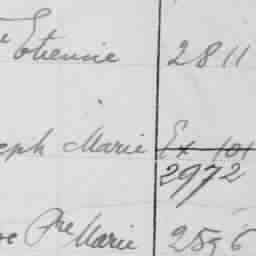 Etienne 2811
eph Marie Ex 101
2972
Pre Marie 2596